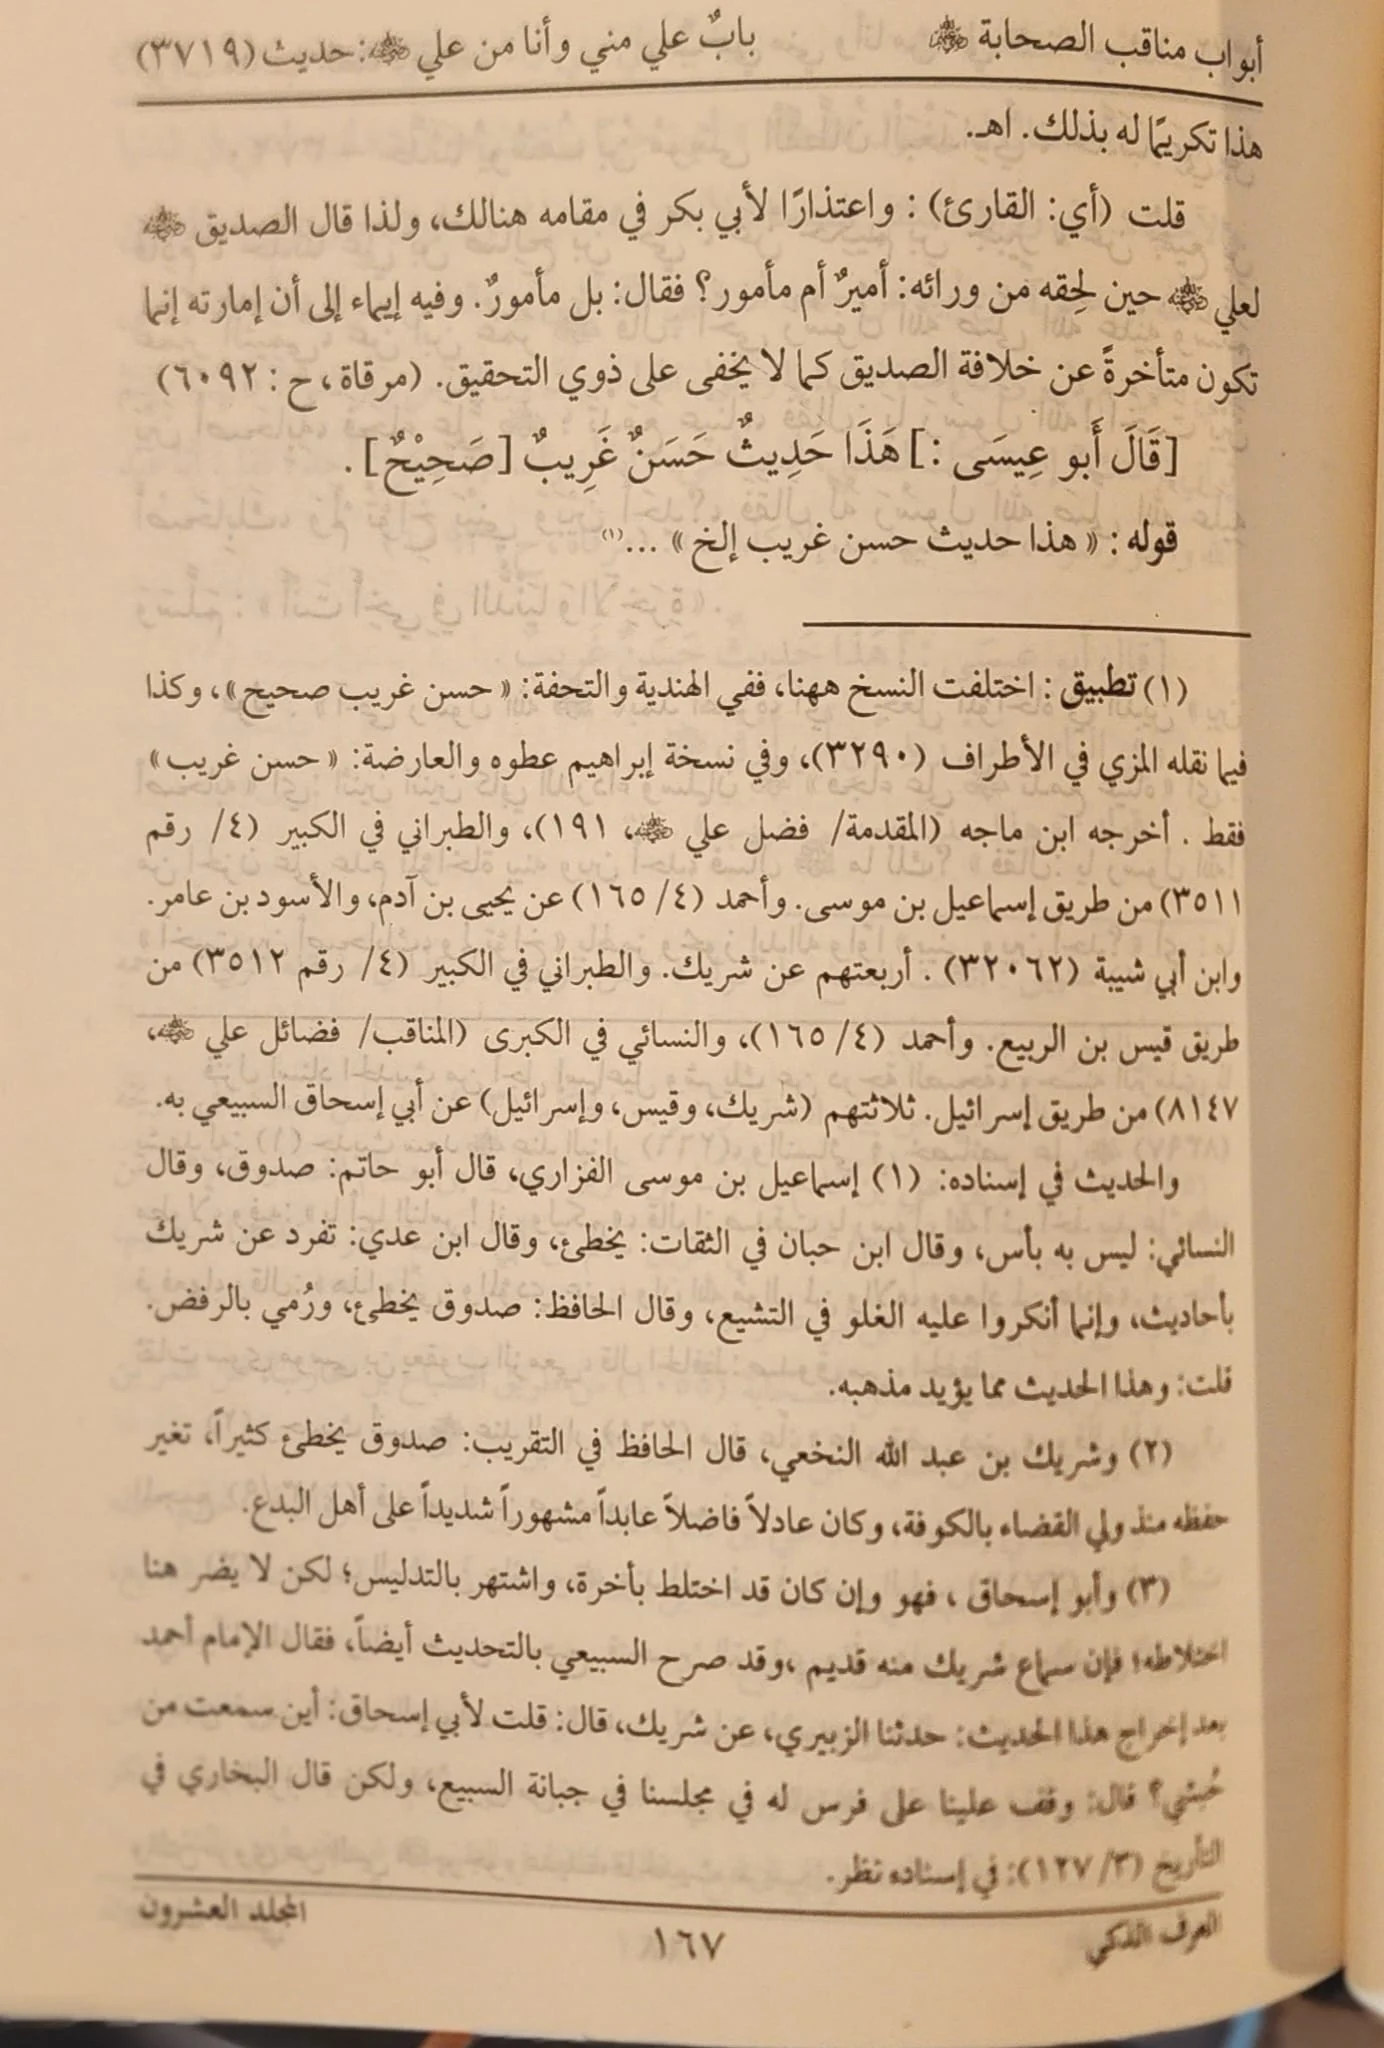 أبواب مناقب الصحابة ﷺ بابٌ علي مني وأنا من علي ﷺ: حديث (٣٧١٩)
هذا تكريمًا له بذلك. اهـ.
قلت (أي: القارئ) : واعتذارًا لأبي بكر في مقامه هنالك، ولذا قال الصديق
لعلي حين لحِقه من ورائه: أميرٌ أم مأمور؟ فقال: بل مأمورٌ. وفيه إيماء إلى أن إمارته إنما
تكون متأخرةً عن خلافة الصديق كما لا يخفى على ذوي التحقيق. (مرقاة ، ح : ٦٠٩٢)
[قَالَ أَبو عِيسَى :] هَذَا حَدِيثٌ حَسَنٌ غَرِيبٌ [صَحِيْحٌ] .
قوله : « هذا حديث حسن غريب إلخ » ...(١)
(١) تطبيق : اختلفت النسخ ههنا، ففي الهندية والتحفة: « حسن غريب صحيح»، وكذا
فيما نقله المزي في الأطراف (٣٢٩٠)، وفي نسخة إبراهيم عطوه والعارضة: « حسن غريب»
فقط . أخرجه ابن ماجه (المقدمة/ فضل علي ، ١٩١)، والطبراني في الكبير (٤/ رقم
٣٥١١) من طريق إسماعيل بن موسى. وأحمد (٤/ ١٦٥) عن يحيى بن آدم، والأسود بن عامر.
وابن أبي شيبة (٣٢٠٦٢) . أربعتهم عن شريك. والطبراني في الكبير (٤/ رقم ٣٥١٢) من
طريق قيس بن الربيع. وأحمد (٤/ ١٦٥)، والنسائي في الكبرى (المناقب/ فضائل علي ،
٨١٤٧) من طريق إسرائيل. ثلاثتهم (شريك، وقيس، وإسرائيل) عن أبي إسحاق السبيعي به.
والحديث في إسناده: (١) إسماعيل بن موسى الفزاري، قال أبو حاتم: صدوق، وقال
النسائي: ليس به بأس، وقال ابن حبان في الثقات: يخطئ، وقال ابن عدي: تفرد عن شريك
بأحاديث، وإنما أنكروا عليه الغلو في التشيع، وقال الحافظ: صدوق يخطئ، ورُمي بالرفض.
قلت: وهذا الحديث مما يؤيد مذهبه.
(٢) وشريك بن عبد الله النخعي، قال الحافظ في التقريب: صدوق يخطئ كثيراً، تغير
حفظه منذ ولي القضاء بالكوفة، وكان عادلاً فاضلاً عابداً مشهوراً شديداً على أهل البدع.
(٣) وأبو إسحاق ، فهو وإن كان قد اختلط بأخرة، واشتهر بالتدليس؛ لكن لا يضر هنا
اختلاطه؛ فإن سماع شريك منه قديم ،وقد صرح السبيعي بالتحديث أيضاً، فقال الإمام أحمد
بعد إخراج هذا الحديث: حدثنا الزبيري، عن شريك، قال: قلت لأبي إسحاق: أين سمعت من
حُبشي؟ قال: وقف علينا على فرس له في مجلسنا في جبانة السبيع، ولكن قال البخاري في
التأريخ (٣/ ١٢٧): في إسناده نظر.
العرف الذكي ١٦٧ المجلد العشرون